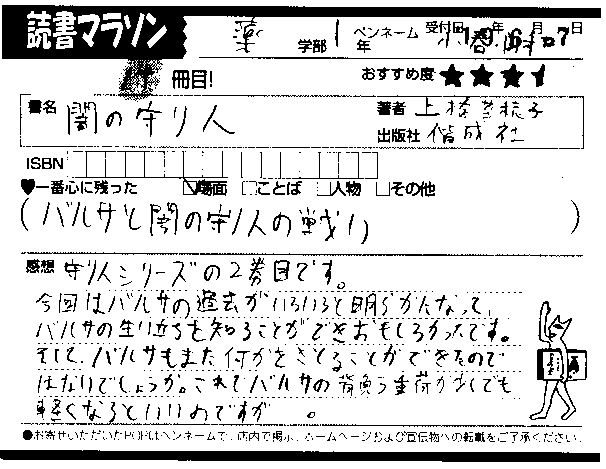 読書マラソン 薬 学部 1 年 ペンネーム 受付日 年 6 月 7 日
冊目! おすすめ度 ★★★
書名 闇の守り人 著者 上橋菜穂子
出版社 偕成社
ISBN
♥一番心に残った □場面 □ことば □人物 □その他
(バルサと闇の守り人の戦い)
感想 守り人シリーズの2巻目です。
今回はバルサの過去がいろいろと明らかになって、
バルサの生い立ちを知ることができおもしろかったです。
そして、バルサもまた何かをさとることができたので
はないでしょうか。これでバルサの背負う重荷が少しでも
軽くなるといいのですが 。
●お寄せいただいたPOPはペンネームで、店内で掲示、ホームページおよび宣伝物への転載をご了承ください。